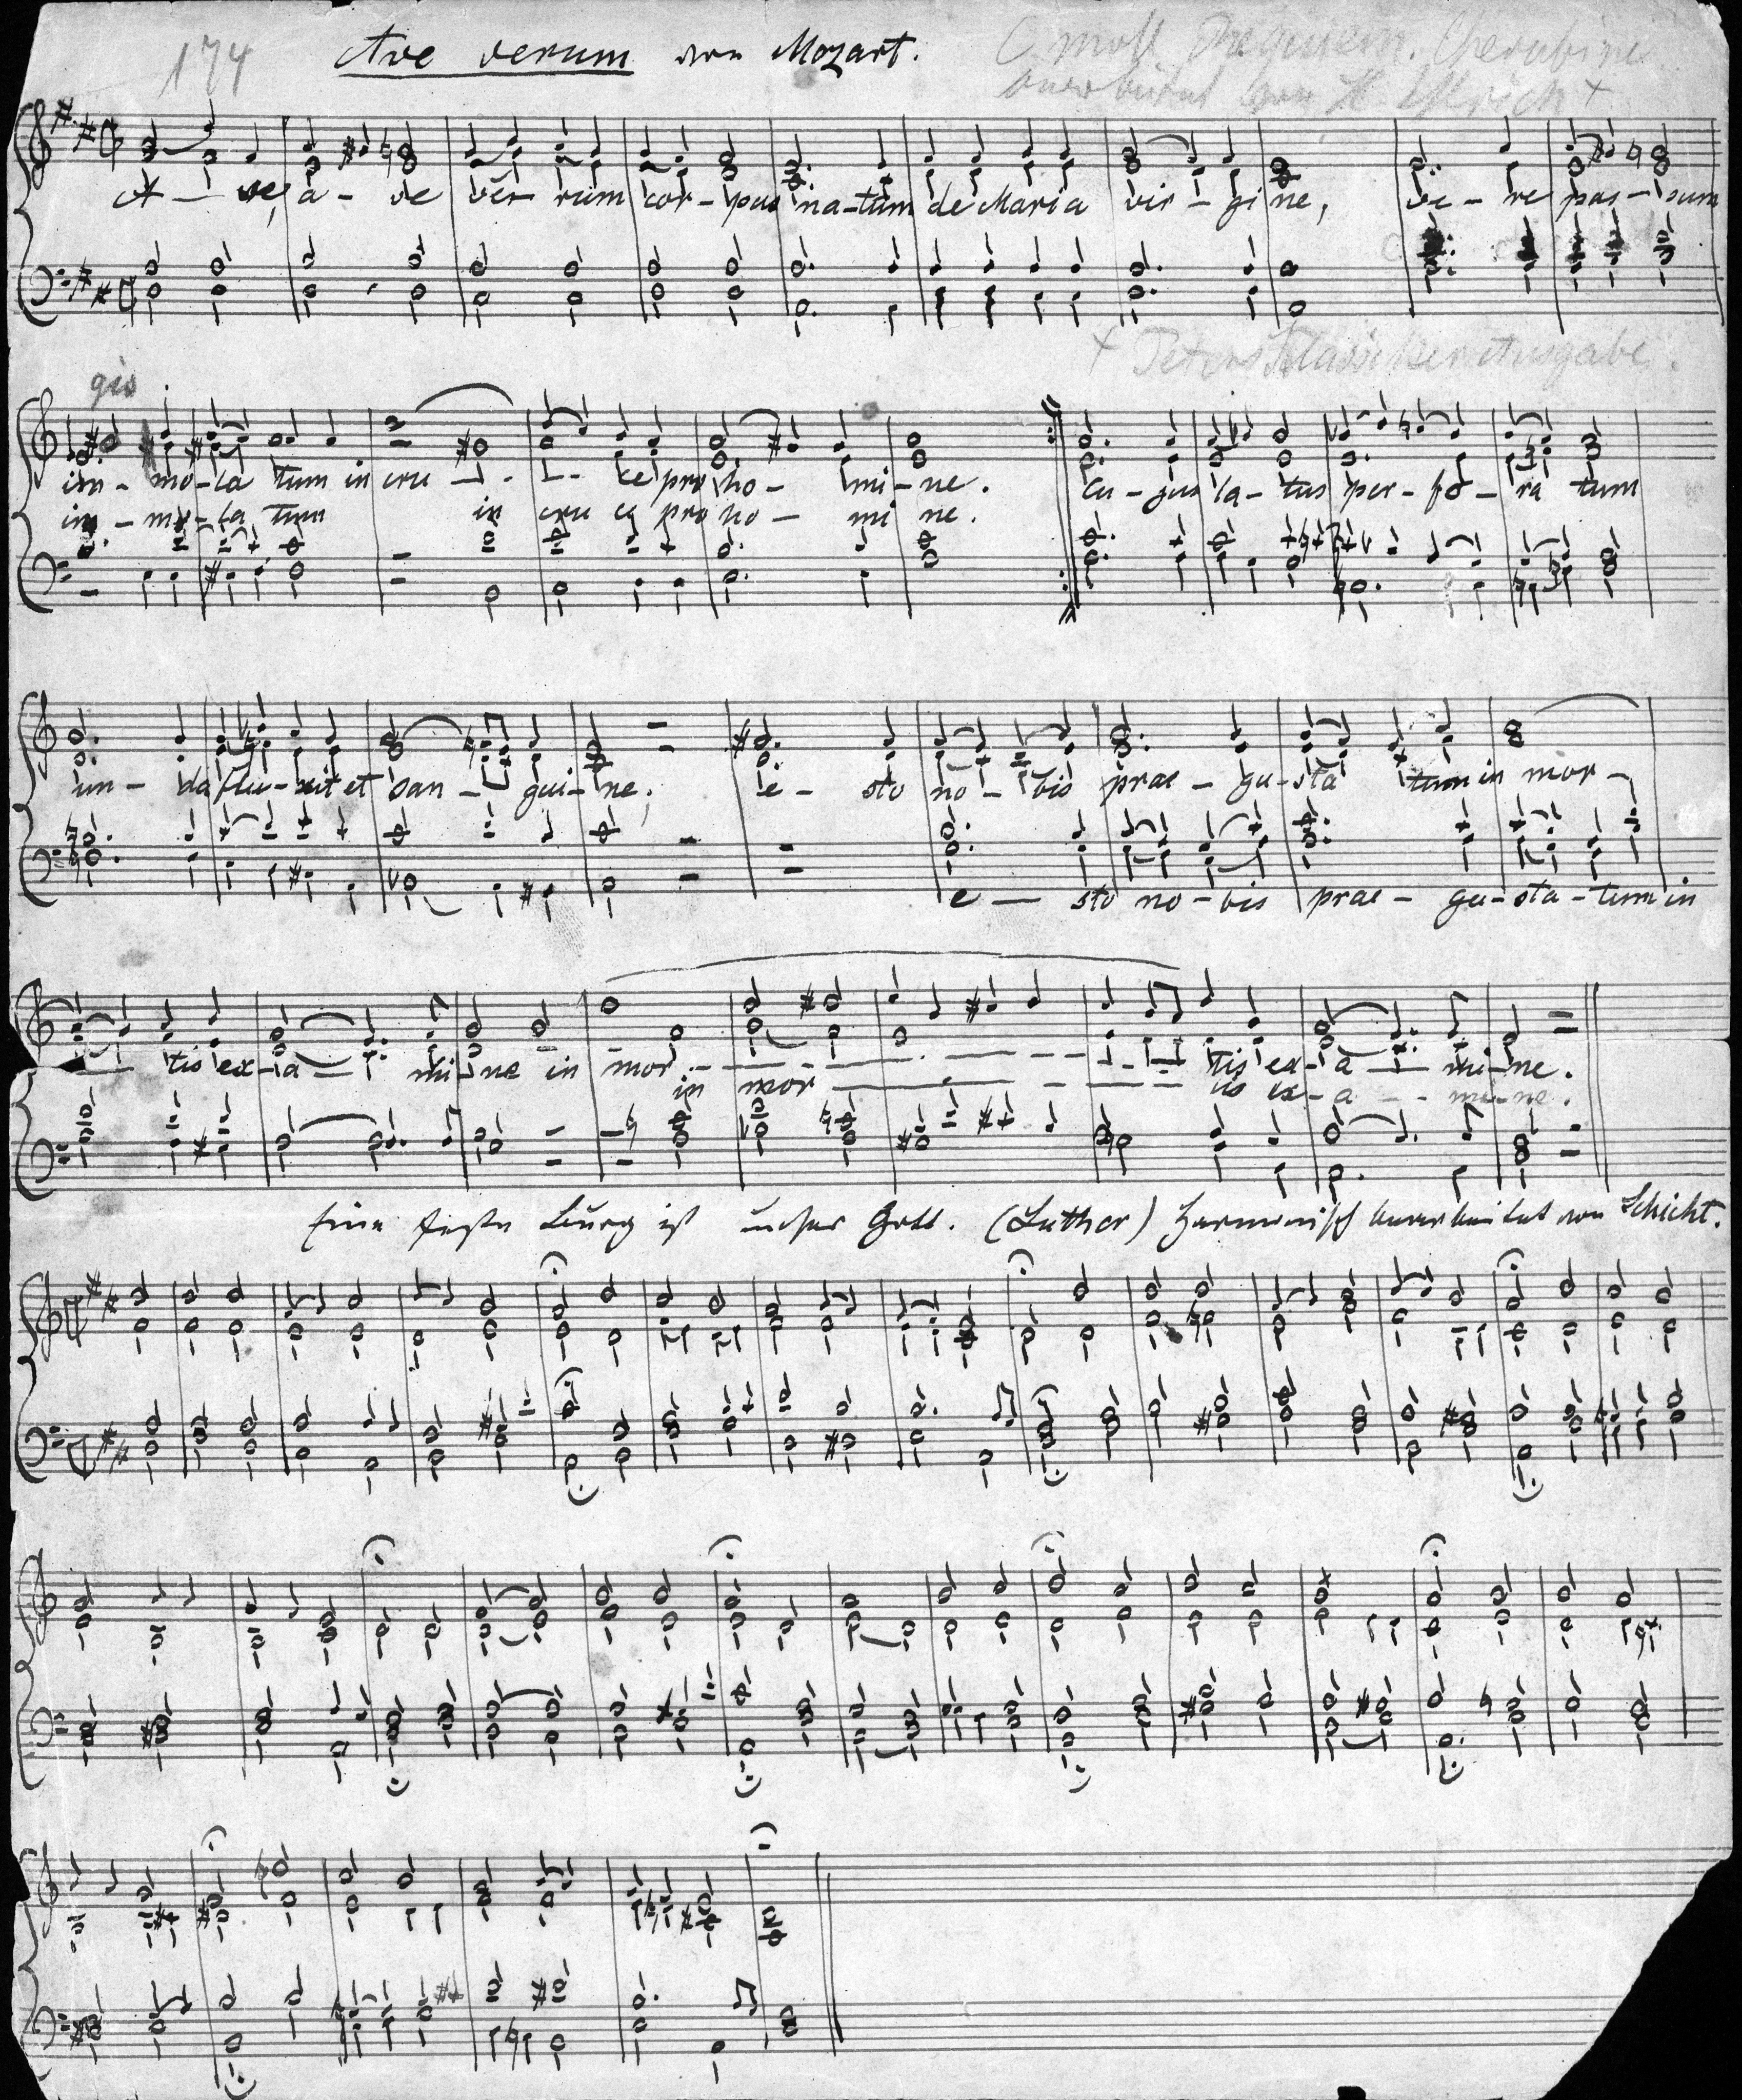 174 Ave verum von Mozart.
C moll Requiem. Cherubini
bearbeitet von H. Ulrich +
A - ve, a - ve ver - rum cor - pus na - tum de Maria vir - gi ne, ve - re pas - sum
+ Peters Klassiker Ausgabe.
gis
im - mo - la tum in cru - - ce pro ho - mi - ne. cu - jus la - tus per - fo - ra tum
im - mo - la tum in cru ce pro ho - mi ne.
un - da flu - xit et san - gui - ne, e - sto no - bis prae - gu - sta tum in mor -
e - sto no - bis prae - gu - sta - tum in
tis ex - a - mi - ne in mor - - - tis ex - a - mi - ne.
in mor - - - tis ex - a - - mi - ne.
Eine feste Burg ist unser Gott. (Luther) harmonisch bearbeitet von Schicht.